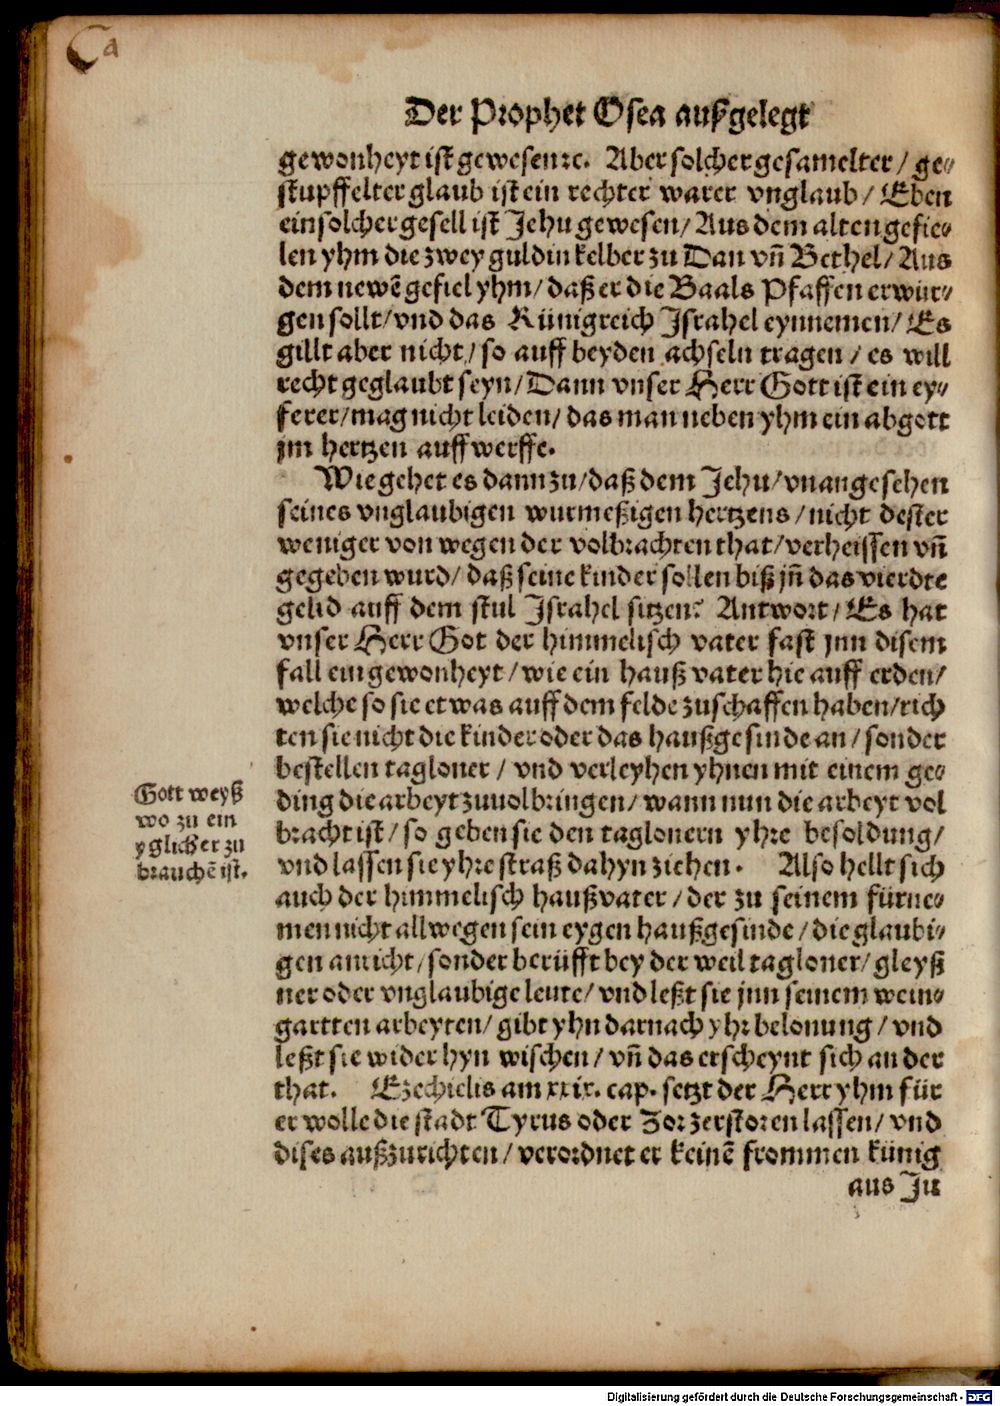 Ca
Der Prophet Osea außgelegt
gewonheyt ist gewesen ꝛc. Aber solcher gesamelter / ge⸗
stupffelter glaub ist ein rechter warer vnglaub / Eben
ein solcher gesell ist Jehu gewesen / Aus dem alten gefie⸗
len yhm die zwey guldin kelber zu Dan vñ Bethel / Aus
dem newẽ gefiel yhm / daß er die Baals Pfaffen erwür⸗
gen sollt / vnd das Künigreich Jsrahel eynnemen / Es
gillt aber nicht / so auff beyden achseln tragen / es will
recht geglaubt seyn / Dann vnser Herr Gott ist ein ey⸗
ferer / mag nicht leiden / das man neben yhm ein abgott
jm hertzen auff werffe.
Wie gehet es dann zu / daß dem Jehu / vnangesehen
seines vnglaubigen wurmeßigen hertzens / nicht dester
weniger von wegen der volbrachten that / verheissen vñ
gegeben wurd / daß seine kinder sollen biß jñ das vierdte
gelid auff dem stul Jsrahel sitzen? Antwort / Es hat
vnser Herr Got der himmelisch vater fast jnn disem
fall ein gewonheyt / wie ein hauß vater hie auff erden /
welche so sie etwas auff dem felde zuschaffen haben / rich
ten sie nicht die kinder oder das haußgesinde an / sonder
bestellen tagloner / vnd verleyhen yhnen mit einem ge⸗
ding die arbeyt zuuolbringen / wann nun die arbeyt vol
bracht ist / so geben sie den taglonern yhre besoldung /
vnd lassen sie yhre straß dahyn ziehen. Also hellt sich
auch der himmelisch haußvater / der zu seinem fürne⸗
men nicht allwegen sein eygen haußgesinde / die glaubi⸗
gen anricht / sonder berüfft bey der weil tagloner / gleyß
ner oder vnglaubige leute / vnd leßt sie jnn seinem wein⸗
gartten arbeyten / gibt yhn darnach yhr belonung / vnd
leßt sie wider hyn wischen / vñ das erscheynt sich an der
that. Ezechielis am xxix. cap. setzt der Herr yhm für
er wolle die stadt Tyrus oder Zor zerstoren lassen / vnd
dises außzurichten / verordnet er keinẽ frommen künig
aus Ju
Gott weyß
wo zu ein
yglicher zu
brauchẽ ist.
Digitalisierung gefördert durch die Deutsche Forschungsgemeinschaft - DFG